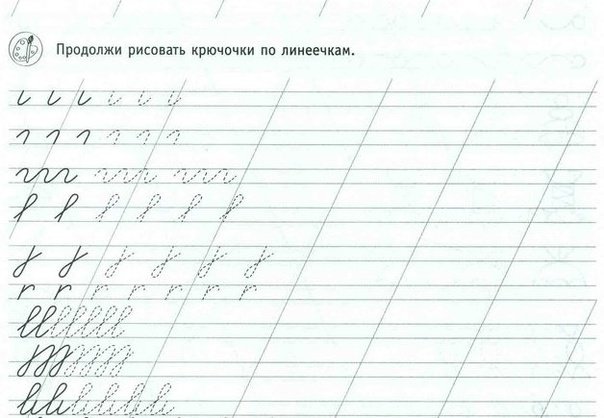 Продолжи рисовать крючочки по линеечкам.